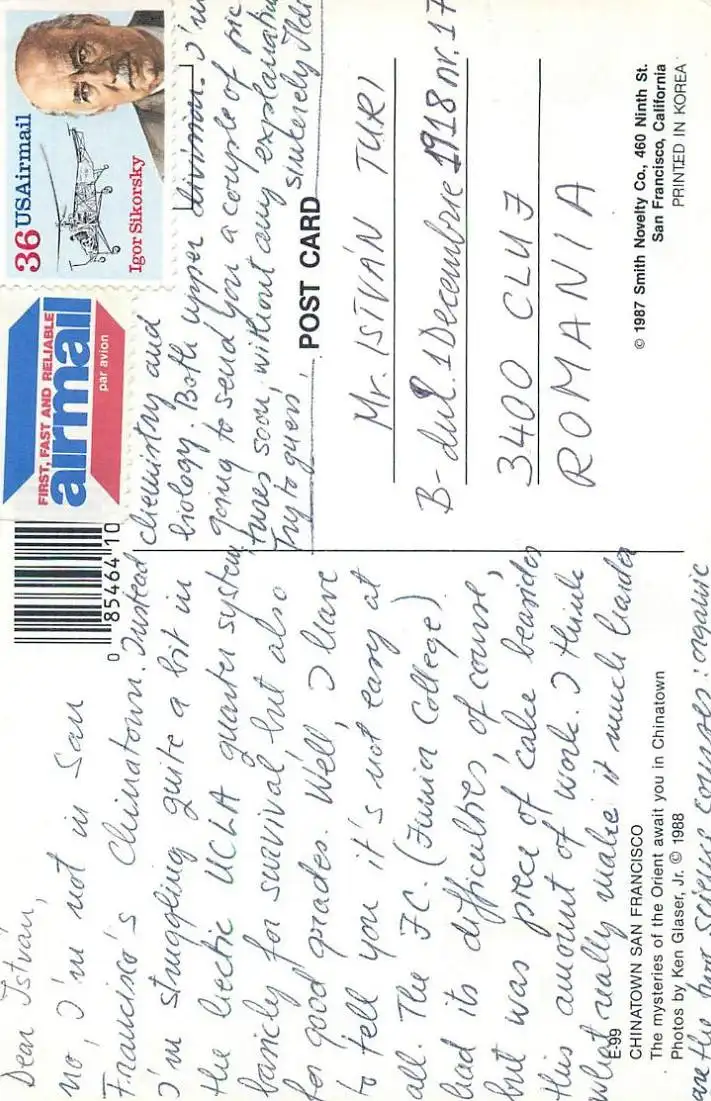 Dear István,
no, I'm not in San
Francisco's Chinatown. Instead
I'm struggling quite a bit in
the hectic UCLA quarter system,
basicly for survival but also
for good grades. Well, I have
to tell you it's not easy at
all. The J.C. (Junior College)
had its difficulties, of course,
but was piece of cake besides
this amount of work. I think
what really make it much harder
are the two science courses: organic
chemistry and
biology. Both upper division. I'm
going to send you a couple of pic
tures soon, without any explanation
Try to guess. sinkerely Ildi
E-99
CHINATOWN SAN FRANCISCO
The mysteries of the Orient await you in Chinatown
Photos by Ken Glaser, Jr. © 1988
0 85464 10
FIRST, FAST AND RELIABLE
airmail
par avion
36 USAirmail
Igor Sikorsky
POST CARD
Mr. ISTVÁN TURI
B-dul. 1 Decembrie 1918 nr. 17
3400 CLUJ
ROMANIA
© 1987 Smith Novelty Co., 460 Ninth St.
San Francisco, California
PRINTED IN KOREA